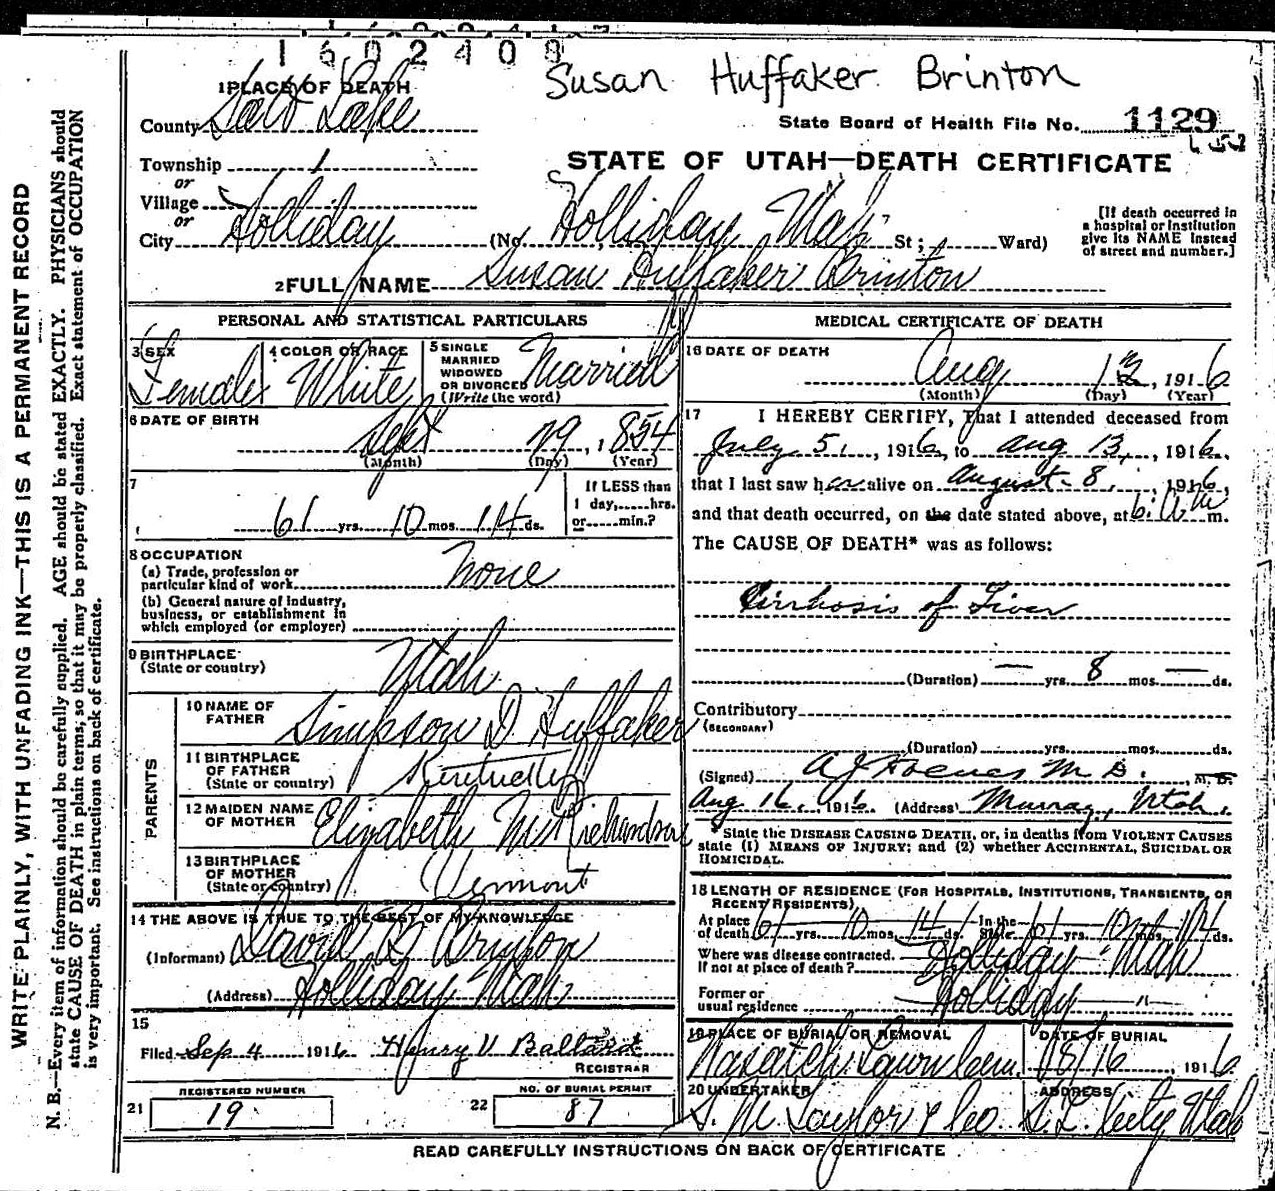 1602408
Susan Huffaker Brinton
1 PLACE OF DEATH
County Salt Lake
State Board of Health File No. 1129
Township
or
Village
or
City Holliday
STATE OF UTAH—DEATH CERTIFICATE
(No. Holliday Utah St; Ward)
[If death occurred in
a hospital or institution
give its NAME instead
of street and number.]
2 FULL NAME Susan Huffaker Brinton
PERSONAL AND STATISTICAL PARTICULARS
3 SEX Female
4 COLOR OR RACE White
5 SINGLE
MARRIED
WIDOWED
OR DIVORCED
(Write the word) Married
6 DATE OF BIRTH
Sept 29, 1854
(Month) (Day) (Year)
7
61 yrs. 10 mos. 14 ds.
If LESS than
1 day,......hrs.
or......min.?
8 OCCUPATION
(a) Trade, profession or
particular kind of work None
(b) General nature of industry,
business, or establishment in
which employed (or employer)
9 BIRTHPLACE
(State or country) Utah
PARENTS
10 NAME OF
FATHER Simpson D. Huffaker
11 BIRTHPLACE
OF FATHER
(State or country) Kentucky
12 MAIDEN NAME
OF MOTHER Elizabeth Richardson
13 BIRTHPLACE
OF MOTHER
(State or country) Vermont
14 THE ABOVE IS TRUE TO THE BEST OF MY KNOWLEDGE
(Informant) David B Brinton
(Address) Holliday Utah
15
Filed Sep 4 1916 Henry V Ballard
REGISTRAR
REGISTERED NUMBER
21 19
NO. OF BURIAL PERMIT
22 87
MEDICAL CERTIFICATE OF DEATH
16 DATE OF DEATH
Aug 13, 1916
(Month) (Day) (Year)
17 I HEREBY CERTIFY, That I attended deceased from
July 5, 1916, to Aug 13, 1916,
that I last saw her alive on August 8, 1916,
and that death occurred, on the date stated above, at 6: A.M. m.
The CAUSE OF DEATH* was as follows:
Cirrhosis of Liver
(Duration) — yrs. 8 mos. — ds.
Contributory
(SECONDARY)
(Duration) yrs. mos. ds.
(Signed) M.D., M.D.
Aug 16, 1916. (Address) Murray, Utah.
*State the DISEASE CAUSING DEATH, or, in deaths from VIOLENT CAUSES
state (1) MEANS OF INJURY; and (2) whether ACCIDENTAL, SUICIDAL OR
HOMICIDAL.
18 LENGTH OF RESIDENCE (FOR HOSPITALS, INSTITUTIONS, TRANSIENTS, OR
RECENT RESIDENTS)
At place
of death 61 yrs. 10 mos. 14 ds. In the
State 61 yrs. 10 mos. 14 ds.
Where was disease contracted.
If not at place of death? Holliday Utah
Former or
usual residence Holliday "
19 PLACE OF BURIAL OR REMOVAL
Wasatch Lawn Cem.
DATE OF BURIAL
8/16, 1916
20 UNDERTAKER
S. M. Taylor & Co.
ADDRESS
S. L. City Utah
READ CAREFULLY INSTRUCTIONS ON BACK OF CERTIFICATE
WRITE PLAINLY, WITH UNFADING INK—THIS IS A PERMANENT RECORD
N. B.—Every item of information should be carefully supplied. AGE should be stated EXACTLY. PHYSICIANS should
state CAUSE OF DEATH in plain terms, so that it may be properly classified. Exact statement of OCCUPATION
is very important. See instructions on back of certificate.